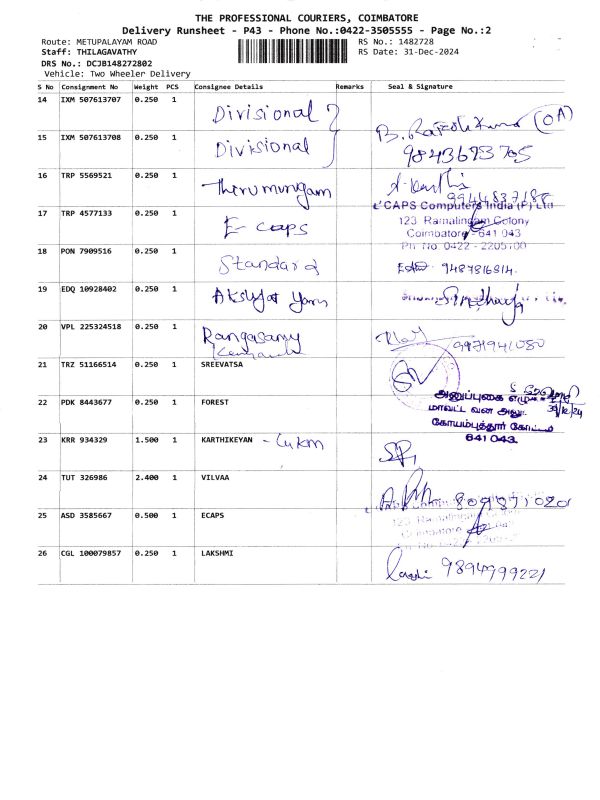 THE PROFESSIONAL COURIERS, COIMBATORE
Delivery Runsheet - P43 - Phone No.:0422-3505555 - Page No.:2
Route: METUPALAYAM ROAD RS No.: 1482728
Staff: THILAGAVATHY RS Date: 31-Dec-2024
DRS No.: DCJB148272802
Vehicle: Two Wheeler Delivery
S No Consignment No Weight PCS Consignee Details Remarks Seal & Signature
14 IXM 507613707 0.250 1 Divisional (OA)
15 IXM 507613708 0.250 1 Divisional 9843693705
16 TRP 5569521 0.250 1 Thirumurugam
17 TRP 4577133 0.250 1 E caps
E'CAPS Computers India (P) Ltd
123 Ramalingam Colony
Coimbatore - 641 043
Ph No 0422 - 2205100
18 PON 7909516 0.250 1 Standard 9487816814
19 EDQ 10928402 0.250 1 Akshyat Yarn
20 VPL 225324518 0.250 1 Rangasamy
21 TRZ 51166514 0.250 1 SREEVATSA
22 PDK 8443677 0.250 1 FOREST
மாவட்ட வன அலு
கோயம்புத்தூர் கோட்டம்
641 043
23 KRR 934329 1.500 1 KARTHIKEYAN
24 TUT 326986 2.400 1 VILVAA
25 ASD 3585667 0.500 1 ECAPS
26 CGL 100079857 0.250 1 LAKSHMI 9894999221